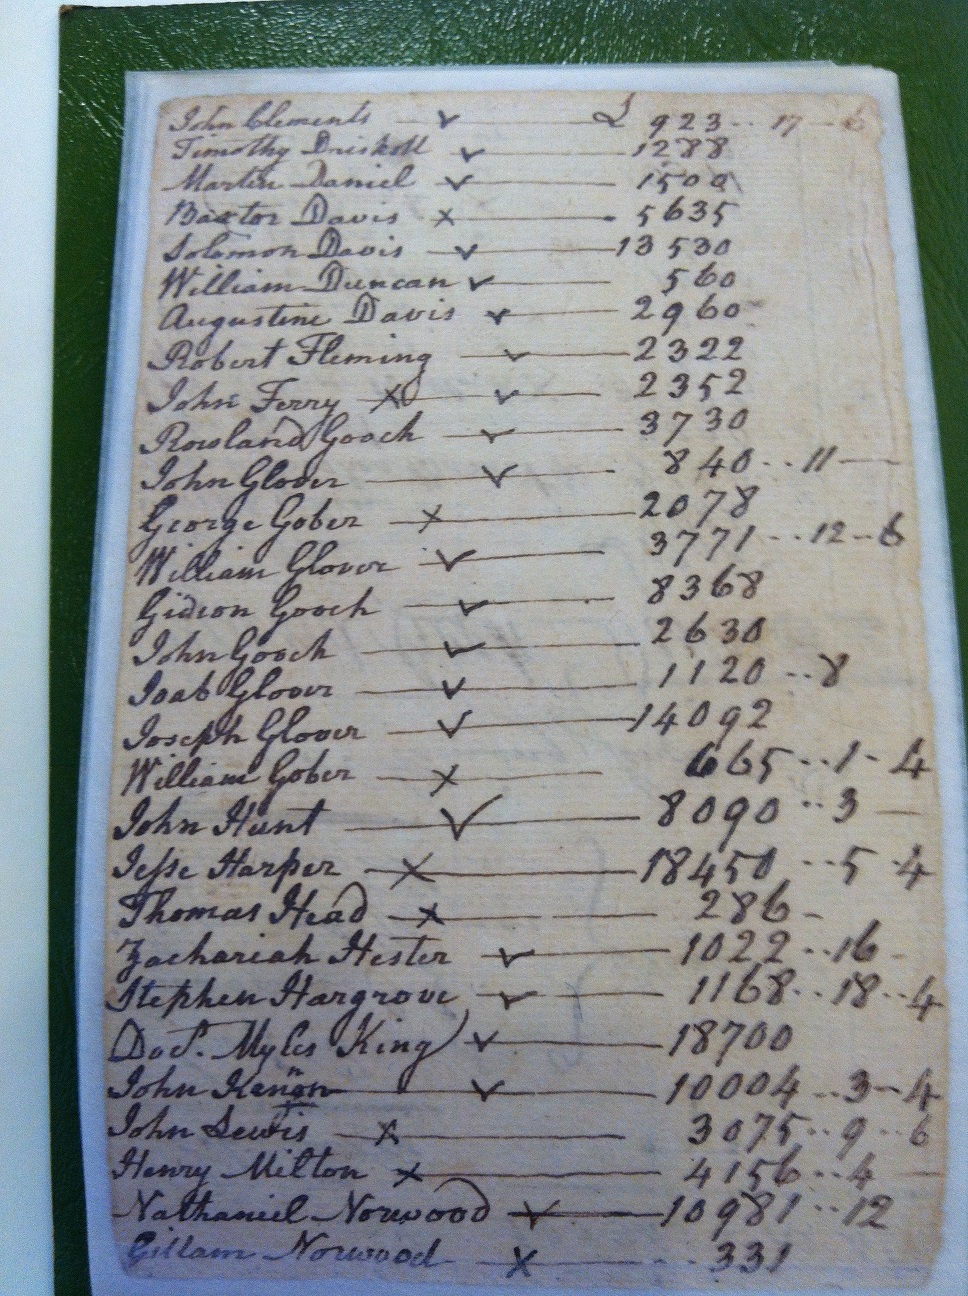 John Clements ✓ £ 923 .. 17 - 6
Timothy Driskoll ✓ 1288
Martin Daniel ✓ 1500
Baxtor Davis x 5635
Solomon Davis ✓ 13530
William Duncan ✓ 560
Augustine Davis ✓ 2960
Robert Fleming ✓ 2322
John Ferry X ✓ 2352
Rowland Gooch ✓ 3730
John Glover ✓ 840 .. 11 —
George Gober x 2078
William Glover ✓ 3771 .. 12 - 6
Gideon Gooch ✓ 8368
John Gooch ✓ 2630
Joab Glover ✓ 1120 .. 8
Joseph Glover ✓ 14092
William Gober x 665 .. 1 - 4
John Hunt ✓ 8090 .. 3 —
Jesse Harper x 18450 .. 5 - 4
Thomas Head x 286 -
Zachariah Hester ✓ 1022 .. 16 -
Stephen Hargrove ✓ 1168 .. 18 .. 4
Doct. Myles King ✓ 18700
John Kenon ✓ 10004 .. 3 - 4
John Lewis x 3075 .. 9 .. 6
Henry Milton x 4156 .. 4 —
Nathaniel Norwood ✓ 10981 .. 12
Gillam Norwood x 331